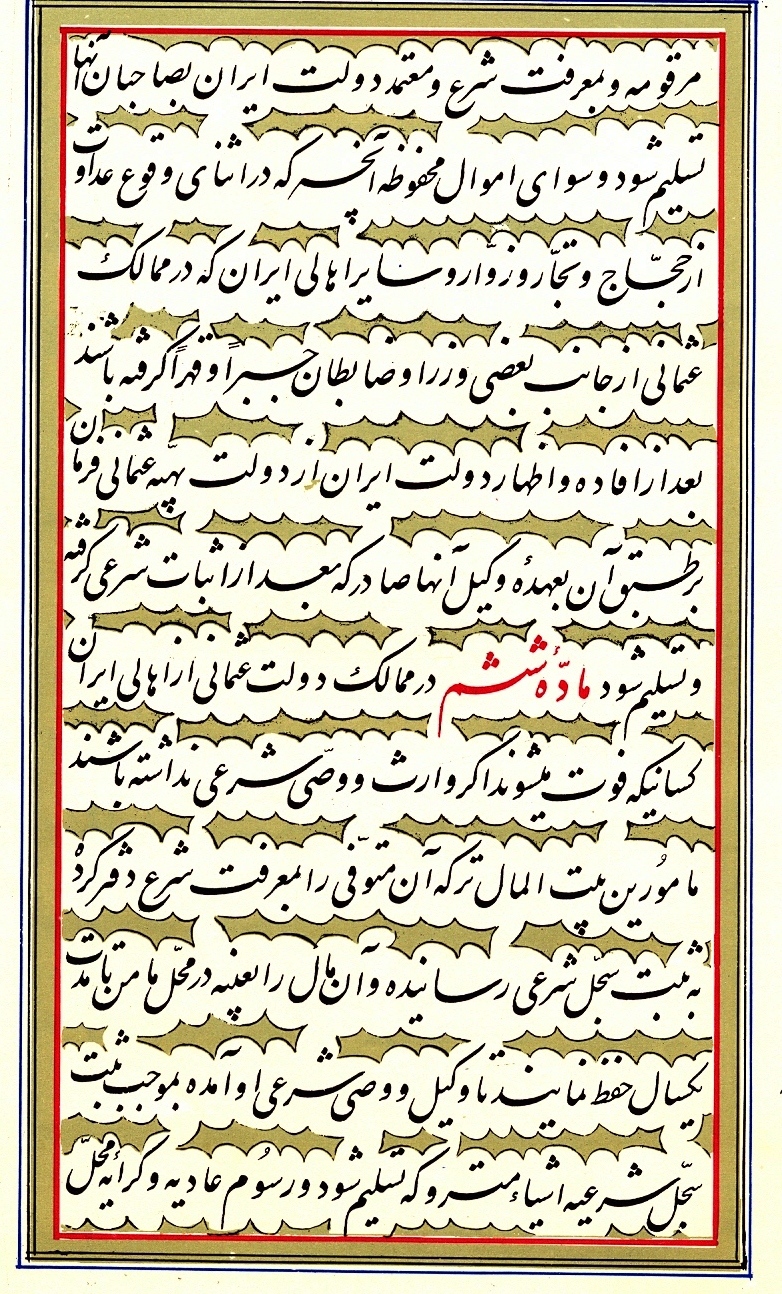 مرقومه و بمعرفت شرع و معتمد دولت ایران بصاحبان آنها
تسلیم شود و سوای اموال محفوظه آنخسر که در اثنای وقوع عداوت
از حجّاج و تجّار و زوّار و سایر اهالی ایران که در ممالک
عثمانی از جانب بعضی وزرا و ضابطان جبراً و قهراً گرفته باشند
بعد از افاده و اظهار دولت ایران از دولت بهیّه عثمانی فرمان
بر طبق آن بعهدهٔ وکیل آنها صادر که بعد از اثبات شرعی گرفته
و تسلیم شود مادّهٔ ششم در ممالک دولت عثمانی از اهالی ایران
کسانیکه فوت میشوند اگر وارث و وصّی شرعی نداشته باشند
مأمورین بیت المال ترکه آن متوّفی را بمعرفت شرع دفتر کرده
به ثبت سجّل شرعی رسانیده و آن مال را بعینه در محّل مامن تا مدت
یکسال حفظ نمایند تا وکیل و وصی شرعی او آمده بموجب ثبت
سجّل شرعیه اشیاء متروکه تسلیم شود و رسُوم عادیه و کرایه محّل